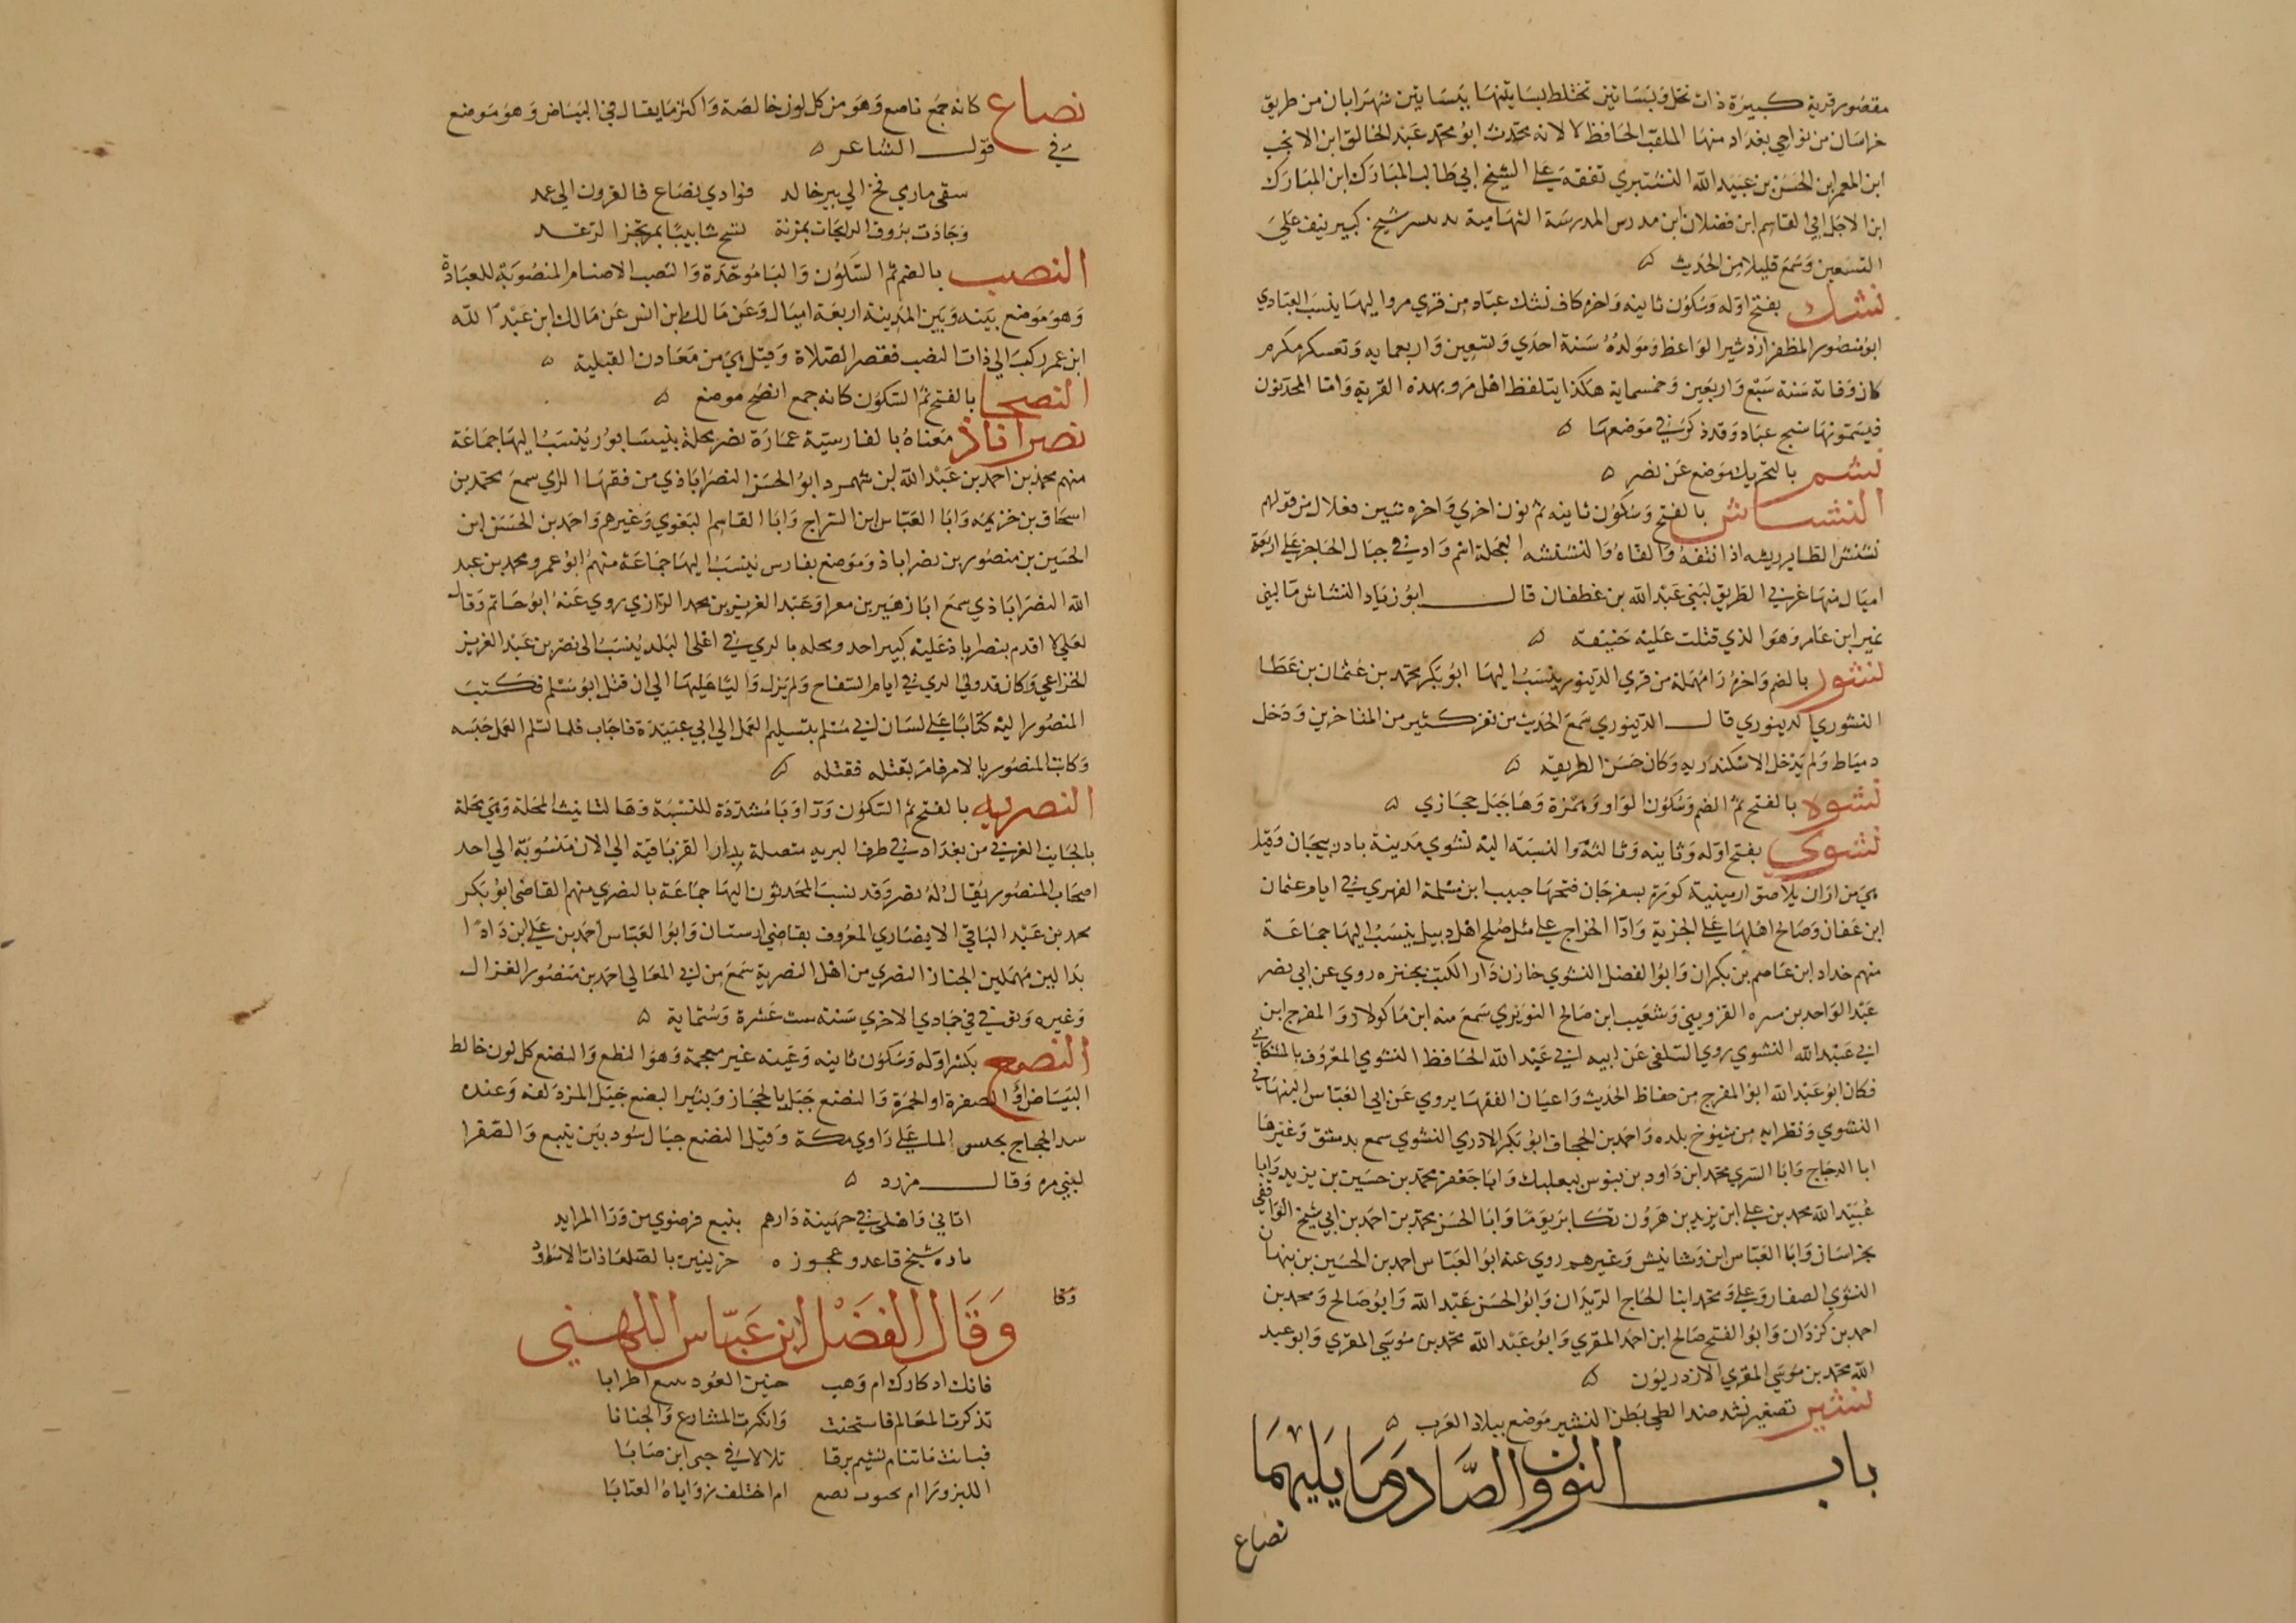 مقصور قرية كبيرة ذات نخل وبساتين تختلط بساتينها ببساتين شهرابان من طريق
خراسان من نواحي بغداد منها الملقب الحافظ لا لانه محدث ابو محمد عبد الخالق ابن الانجب
ابن المعمر ابن الحسن بن عبيد الله النشتبري تفقه على الشيخ ابي طالب المبارك ابن المبارك
ابن الاجل ابي القاسم ابن فضلان ابن مدرس المدرسة الشهابية شيخ كبير نيف على
التسعين وسمع قليلا من الحديث ه
نشك بفتح اوله وسكون ثانيه واخره كاف نشك عباد من قري مرو اليها ينسب العبادي
ابو منصور المظفر اردشير الواعظ ومولده سنة احدي وتسعين واربعمايه وتعسكر مكرم
كان وفاته سنة سبع واربعين وخمسماية هكذا يتلفظ اهل مرو بهذه القرية واما المحدثون
فيسمونها سنج عباد وقد ذكر في موضعها ه
نشم بالتحريك موضع عن نصر ه
النشناش بالفتح وسكون ثانيه ثم نون اخري واخره شين فعلال من قولهم
نشنش الطاير ريشه اذا نتفه والقاه والنشنشه العجلة اسم واد في جبال الحاجر على اربعة
اميال منها غربي الطريق لبني عبد الله بن غطفان قال ابو زياد النشناش ما لبني
نمير ابن عامر وهو الذي قتلت عليه حنيفة ه
نشور بالضم واخره را مهملة من قري الدينور ينسب اليها ابو بكر محمد بن عثمان بن عطا
النشوري الدينوري قال الدينوري سمع الحديث من نفر كثير من المتاخرين ودخل
دمياط ولم يدخل الاسكندريه وكان حسن الطريقه ه
نشوء بالفتح ثم الضم وسكون الواو وهمزة وها جبل حجازي ه
نشوي بفتح اوله وثانيه وثالثه والنسبة اليه نشوي مدينة باذربيجان وقيل
هي من اران يلاصق ارمينية كورة بسفرجان فتحها حبيب ابن مسلمة الفهري في ايام عثمان
ابن عفان وصالح اهلها على الجزية وادا الخراج على مثل صلح اهل دبيل ينسب اليها جماعة
منهم حداد ابن عاصم بن بكران وابو الفضل النشوي خازن دار الكتب بجنزه روي عن ابي نصر
عبد الواحد بن مسره القزويني وشعيب ابن صالح التوزري سمع منه ابن ماكولا و المفرج ابن
ابي عبد الله النشوي روي السلفي عن ابيه ابي عبد الله الحافظ النشوي المعروف بالمشكاني
فكان ابو عبد الله ابو المفرج من حفاظ الحديث واعيان الفقها يروي عن ابي العباس النبهاني
النشوي ونظرايه من شيوخ بلده واحمد بن الحجاف ابو بكر الاذري النشوي سمع بدمشق وغيرها
ابا الدحاح وابا السري محمد ابن داود بن نبوس ببعلبك وابا جعفر محمد بن حسين بن يزيد وابا
عبيد الله محمد بن علي ابن يزيد بن هرون وابا الحسن محمد بن احمد بن ابي شيخ الواقفي
بخراسان وابا العباس ابن وشانيش وغيرهم روي عنه ابو العباس احمد بن الحسين بن نبهان
النشوي الصفار وعلي ومحمد ابنا الحاج المريدان وابو الحسن عبد الله وابو صالح ومحمد بن
احمد بن كردان وابو الفتح صالح ابن احمد المقري وابو عبد الله محمد بن موسي المقري وابو عبد
الله محمد بن موسي المقري الازدريون ه
نشير تصغير نشد ضد الطي بطن النشير موضع ببلاد العرب ه
باب النون والصاد وما يليهما
نصاع
نصاع كانه جمع ناصع وهو من كل لون خالصة واكثر ما يقال في البياض وهو موضع
في قول الشاعر ه
سقي ماري فخ الي بير خالد فوادي نصاع فالقرون الي عمد
وجادت بروق الرايحات بمزنة تسح شابيبا بمرتجز الرعد
النصب بالضم ثم السكون والبا موحدة والنصب الاصنام المنصوبة للعبادة
وهو موضع بينه وبين المدينة اربعة اميال وعن مالك ابن انس عن مالك ابن عبد الله
ابن عمر ركب الي ذات النصب فقصر الصلاة وقيل هي من معادن القبلية ه
النصحا بالفتح ثم السكون كانه جمع انصح موضع ه
نصراباذ معناه بالفارسية عمارة نصر محلة بنيسابور ينسب اليها جماعة
منهم محمد بن احمد بن عبد الله ابن شهمرد ابو الحسن النصراباذي من فقها الراي سمع محمد بن
اسحاق بن خزيمه وابا العباس ابن السراج وابا القاسم البغوي وغيرهم واحمد بن الحسن ابن
الحسين بن منصور بن نصراباذ وموضع بفارس ينسب اليها جماعة منهم ابو عمرو محمد بن عبد
الله النصراباذي سمع ابا زهير بن معرا وعبد العزيز بن محمد الرازي روي عنه ابو حاتم وقال
لعلي لا اقدم بنصراباذ عليه كبير احد ومحله بالري في اعلي البلد ينسب الى نصر بن عبد العزيز
الخزاعي وكان قد ولي الري في ايام السفاح ولم يزل واليا عليها الي ان قتل ابو مسلم فكتب
المنصور اليه كتابا على لسان ابي مسلم بتسليم العمل الي ابي عبيدة فاجاب فلما تسلم العمل حبسه
وكاتب المنصور بالامر فامر بقتله فقتله ه
النصريه بالفتح ثم السكون ورا وبا مشددة للنسبة وها التانيث المحلة وهي محلة
بالجانب الغربي من بغداد في طرف البريه متصلة بدار القز باقية الي الان منسوبة الي احد
اصحاب المنصور يقال له نصر وقد نسب المحدثون اليها جماعة بالنصري منهم القاضي ابو بكر
محمد بن عبد الباقي الانصاري المعروف بقاضي ارستان وابو العباس احمد بن علي ابن دادا
بدالين مهملين الخباز النصري من اهل النصرية سمع من ابي المعالي احمد بن منصور الغزال
وغيره وتوفي في جمادي الاخري سنة ست عشرة وستماية ه
النصع بكسر اوله وسكون ثانيه وعينه غير معجمة وهو النطع والنصع كل لون خالط
البياض او الصفرة او الحمرة والنصع جبل بالحجاز وبثبير النصع جبل المزدلفه وعنده
سد الحجاج يحبس الما على وادي مكة وقيل النصع جبال سود بين ينبع والصفرا
لبني مره وقال مزرد ه
اتاني واهلي في جهينة دارهم بنصع فرضوي من ورا المرابد
ماده شيخ قاعد وعجوزه حزينين بالصلعا ذات الاساود
وقا
وقال الفضل ابن عباس اللهبي
فانك ادكارك ام وهب حنين العود يتبع اطرابا
تذكرت المعالم فاستحنت وانكرت المشارع والجنابا
فباتت ما تنام تشيم برقا تلالا في حبي ابن صابا
ام اختلف زواياه العتابا